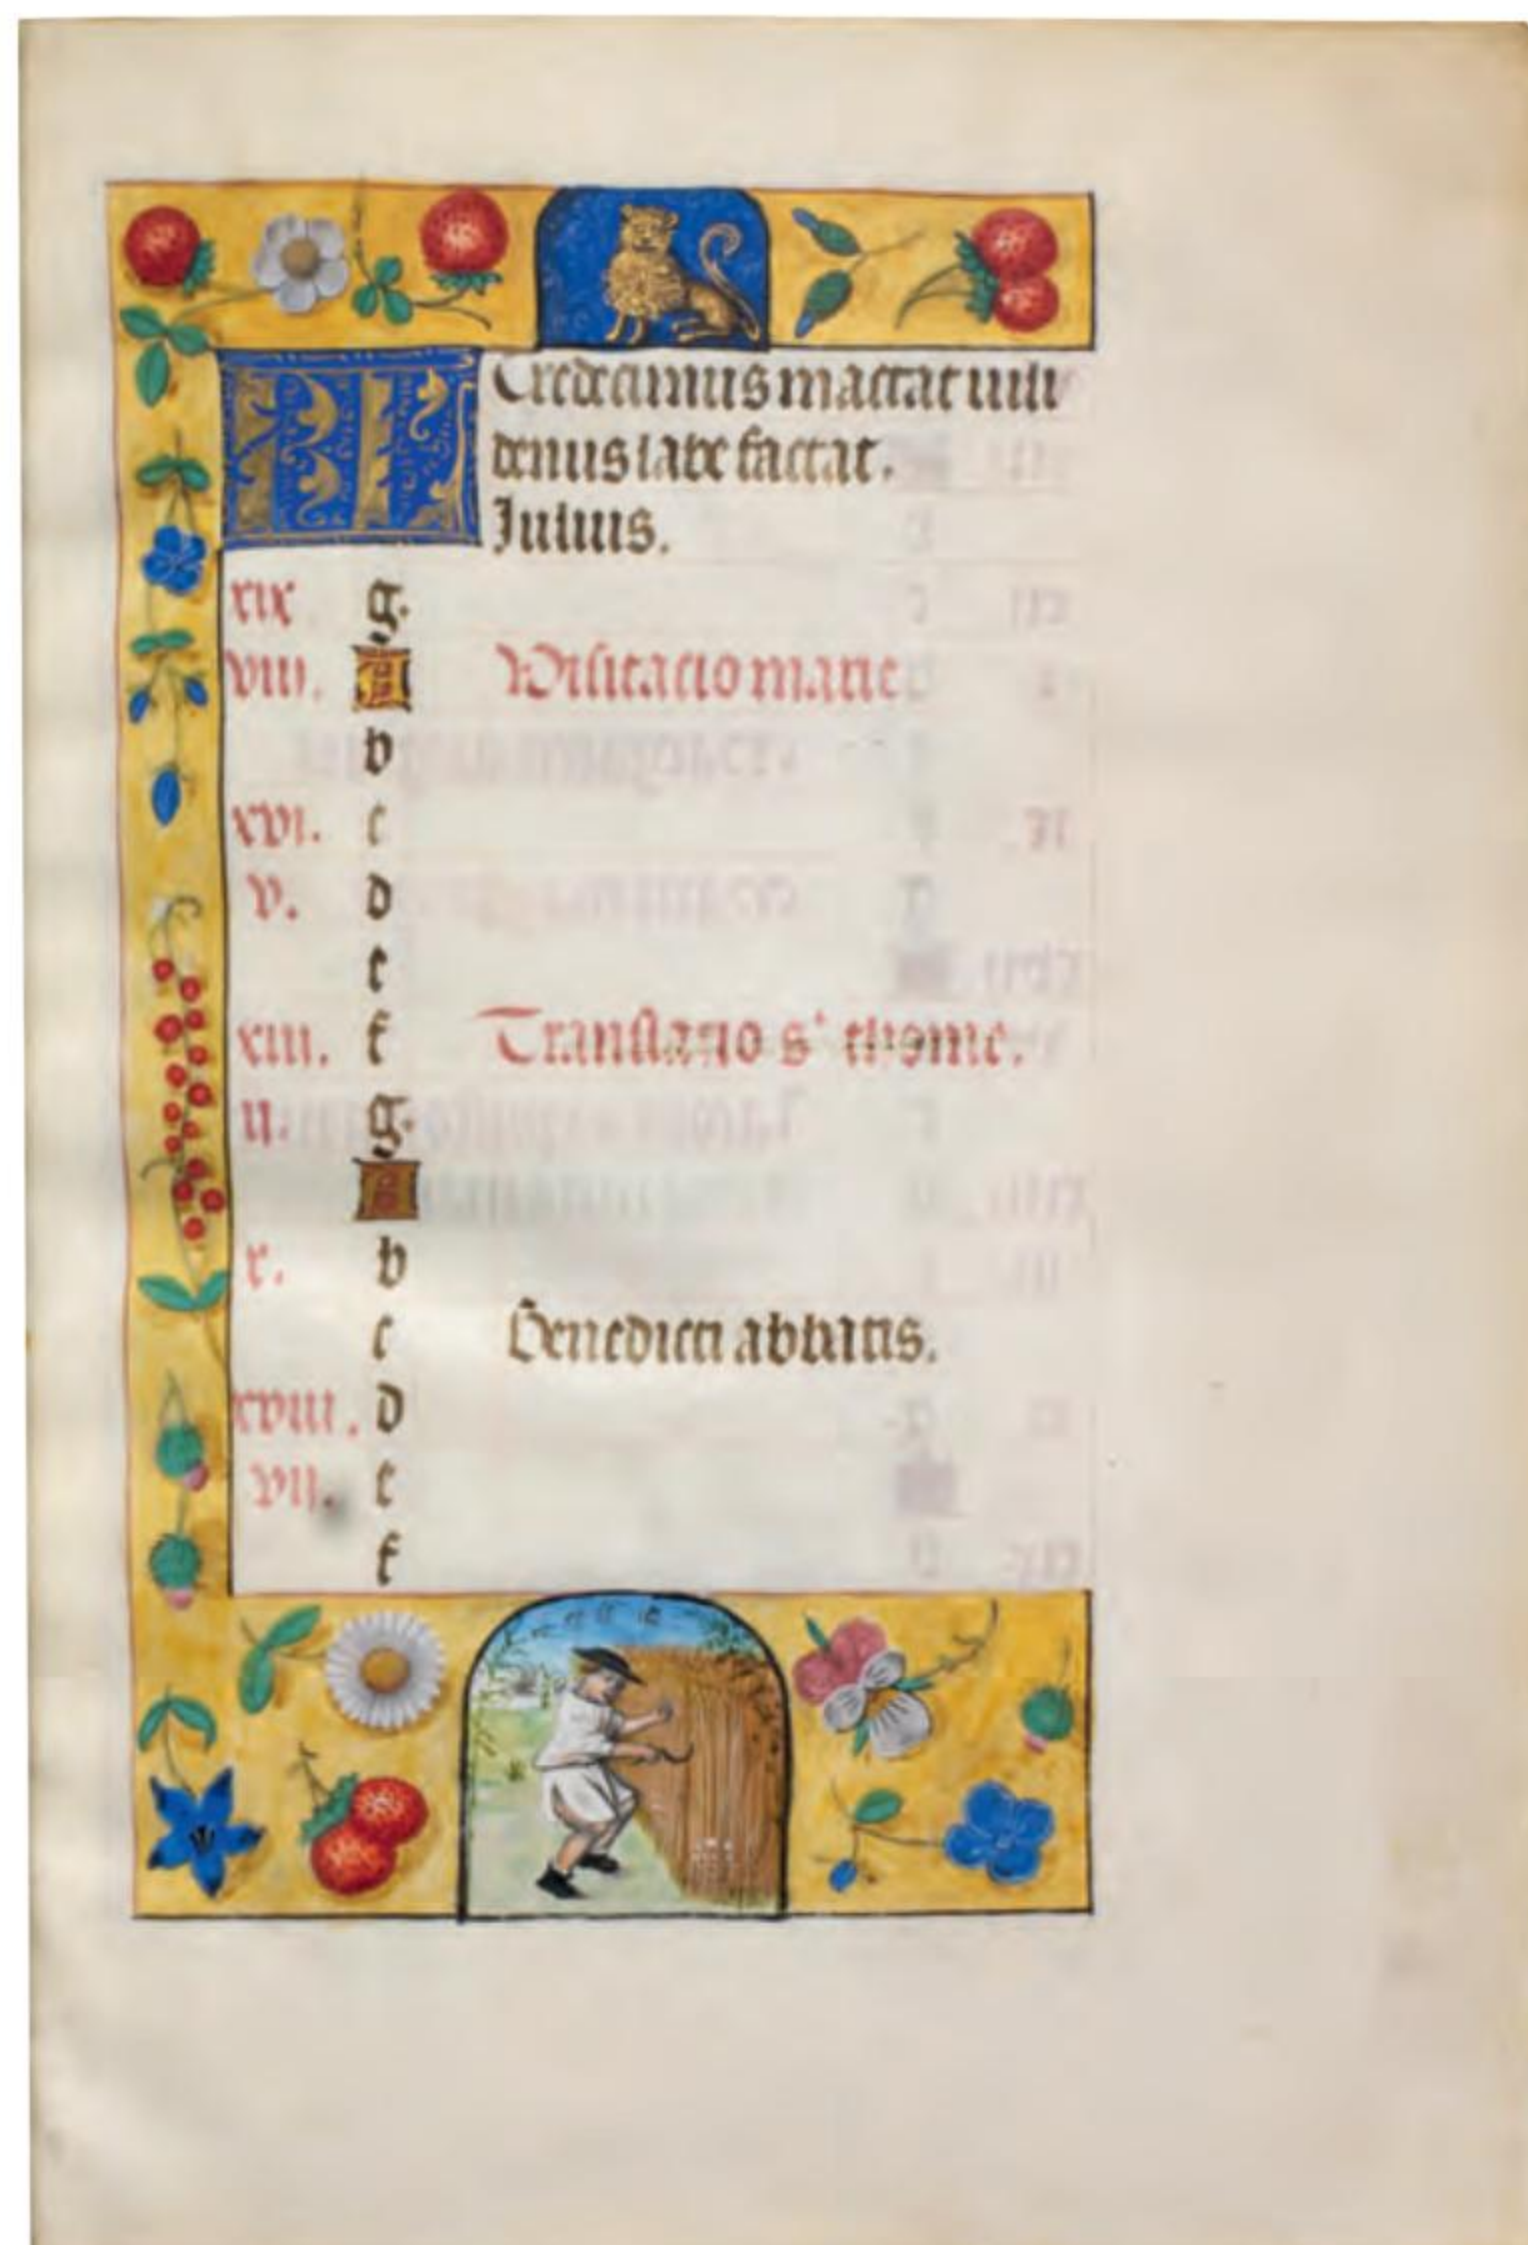 KL Tredecimus mactat iulii
denus labe factat.
Julius.
xix g.
viii. A Visitacio marie
b
xvi. c
v. d
e
xiii. f Translatio s' thome.
ii. g.
A
x. b
c Benedicti abbatis.
xviii. d
vii. e
f